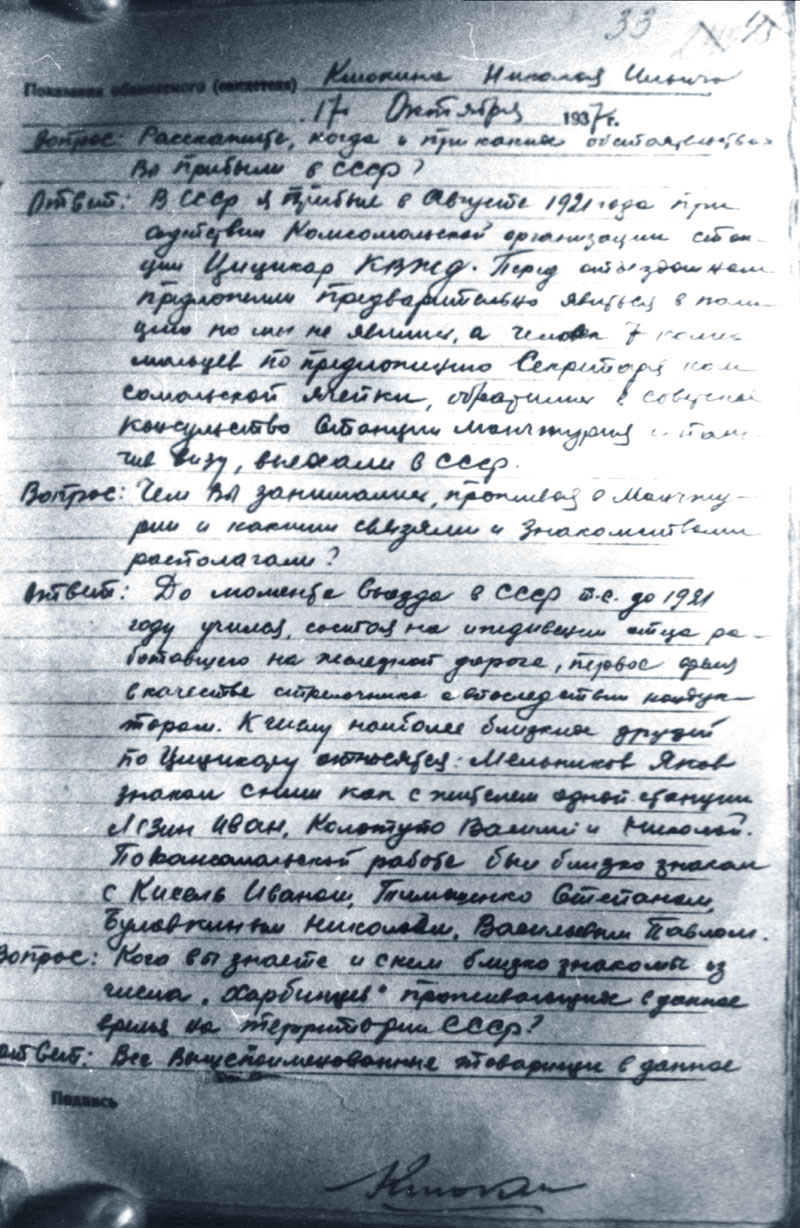 33
Показания обвиняемого (свидетеля) Клюкина Николая Ильича
17 Октября 1937 г.
Вопрос: Расскажите, когда и при каких обстоятельствах
Вы прибыли в СССР?
Ответ: В СССР я прибыл в Августе 1921 года при
содействии Комсомольской организации стан-
ции Цицикар КВЖД. Перед отъездом нам
предложили предварительно явиться в поли-
цию но мы не явились, а человек 7 комсо
мольцев по предложению Секретаря ком
сомольской ячейки, обратились в советское
консульство Станции Манчжурия и полу-
чив визу, выехали в СССР.
Вопрос: Чем Вы занимались, проживая в Манчжу-
рии и какими связями и знакомствами
располагали?
Ответ: До момента выезда в СССР т.е. до 1921
году учился, состоя на иждивении отца ра-
ботавшего на железной дороге, первое время
в качестве стрелочника а впоследствии кондук-
тором. К числу наиболее близких друзей
по Цицикару относятся: Мельников Яков
знаком с ним как с жителем одной станции
Лезин Иван, Колотуто Василий и Николай.
По комсомольской работе был близко знаком
с Кисель Иваном, Тимощенко Степаном,
Буловкиным Николаем, Васильевым Павлом.
Вопрос: Кого вы знаете и с кем близко знакомы из
числа „Харбинцев“ проживающих в данное
время на территории СССР?
Ответ: Все вышепоименованные товарищи в данное
Подпись